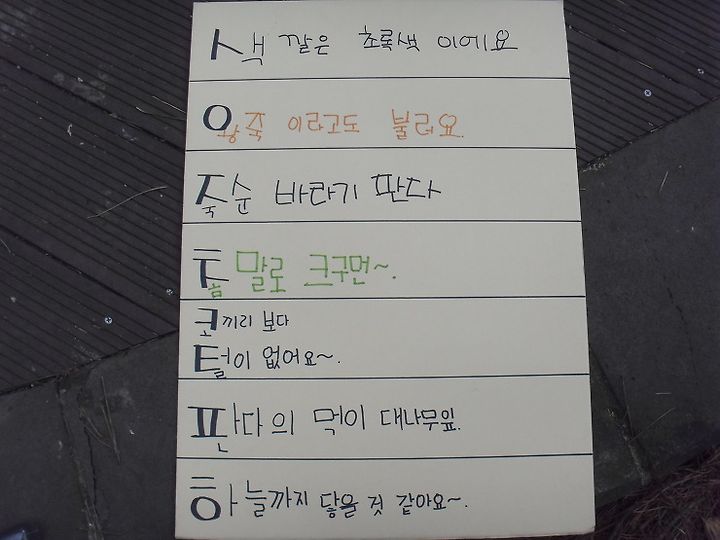 색깔은 초록색 이에요
왕죽 이라고도 불러요.
죽순 바라기 판다
참말로 크구먼~.
코끼리 보다
털이 없어요~.
판다의 먹이 대나무잎.
하늘까지 닿을 것 같아요~.